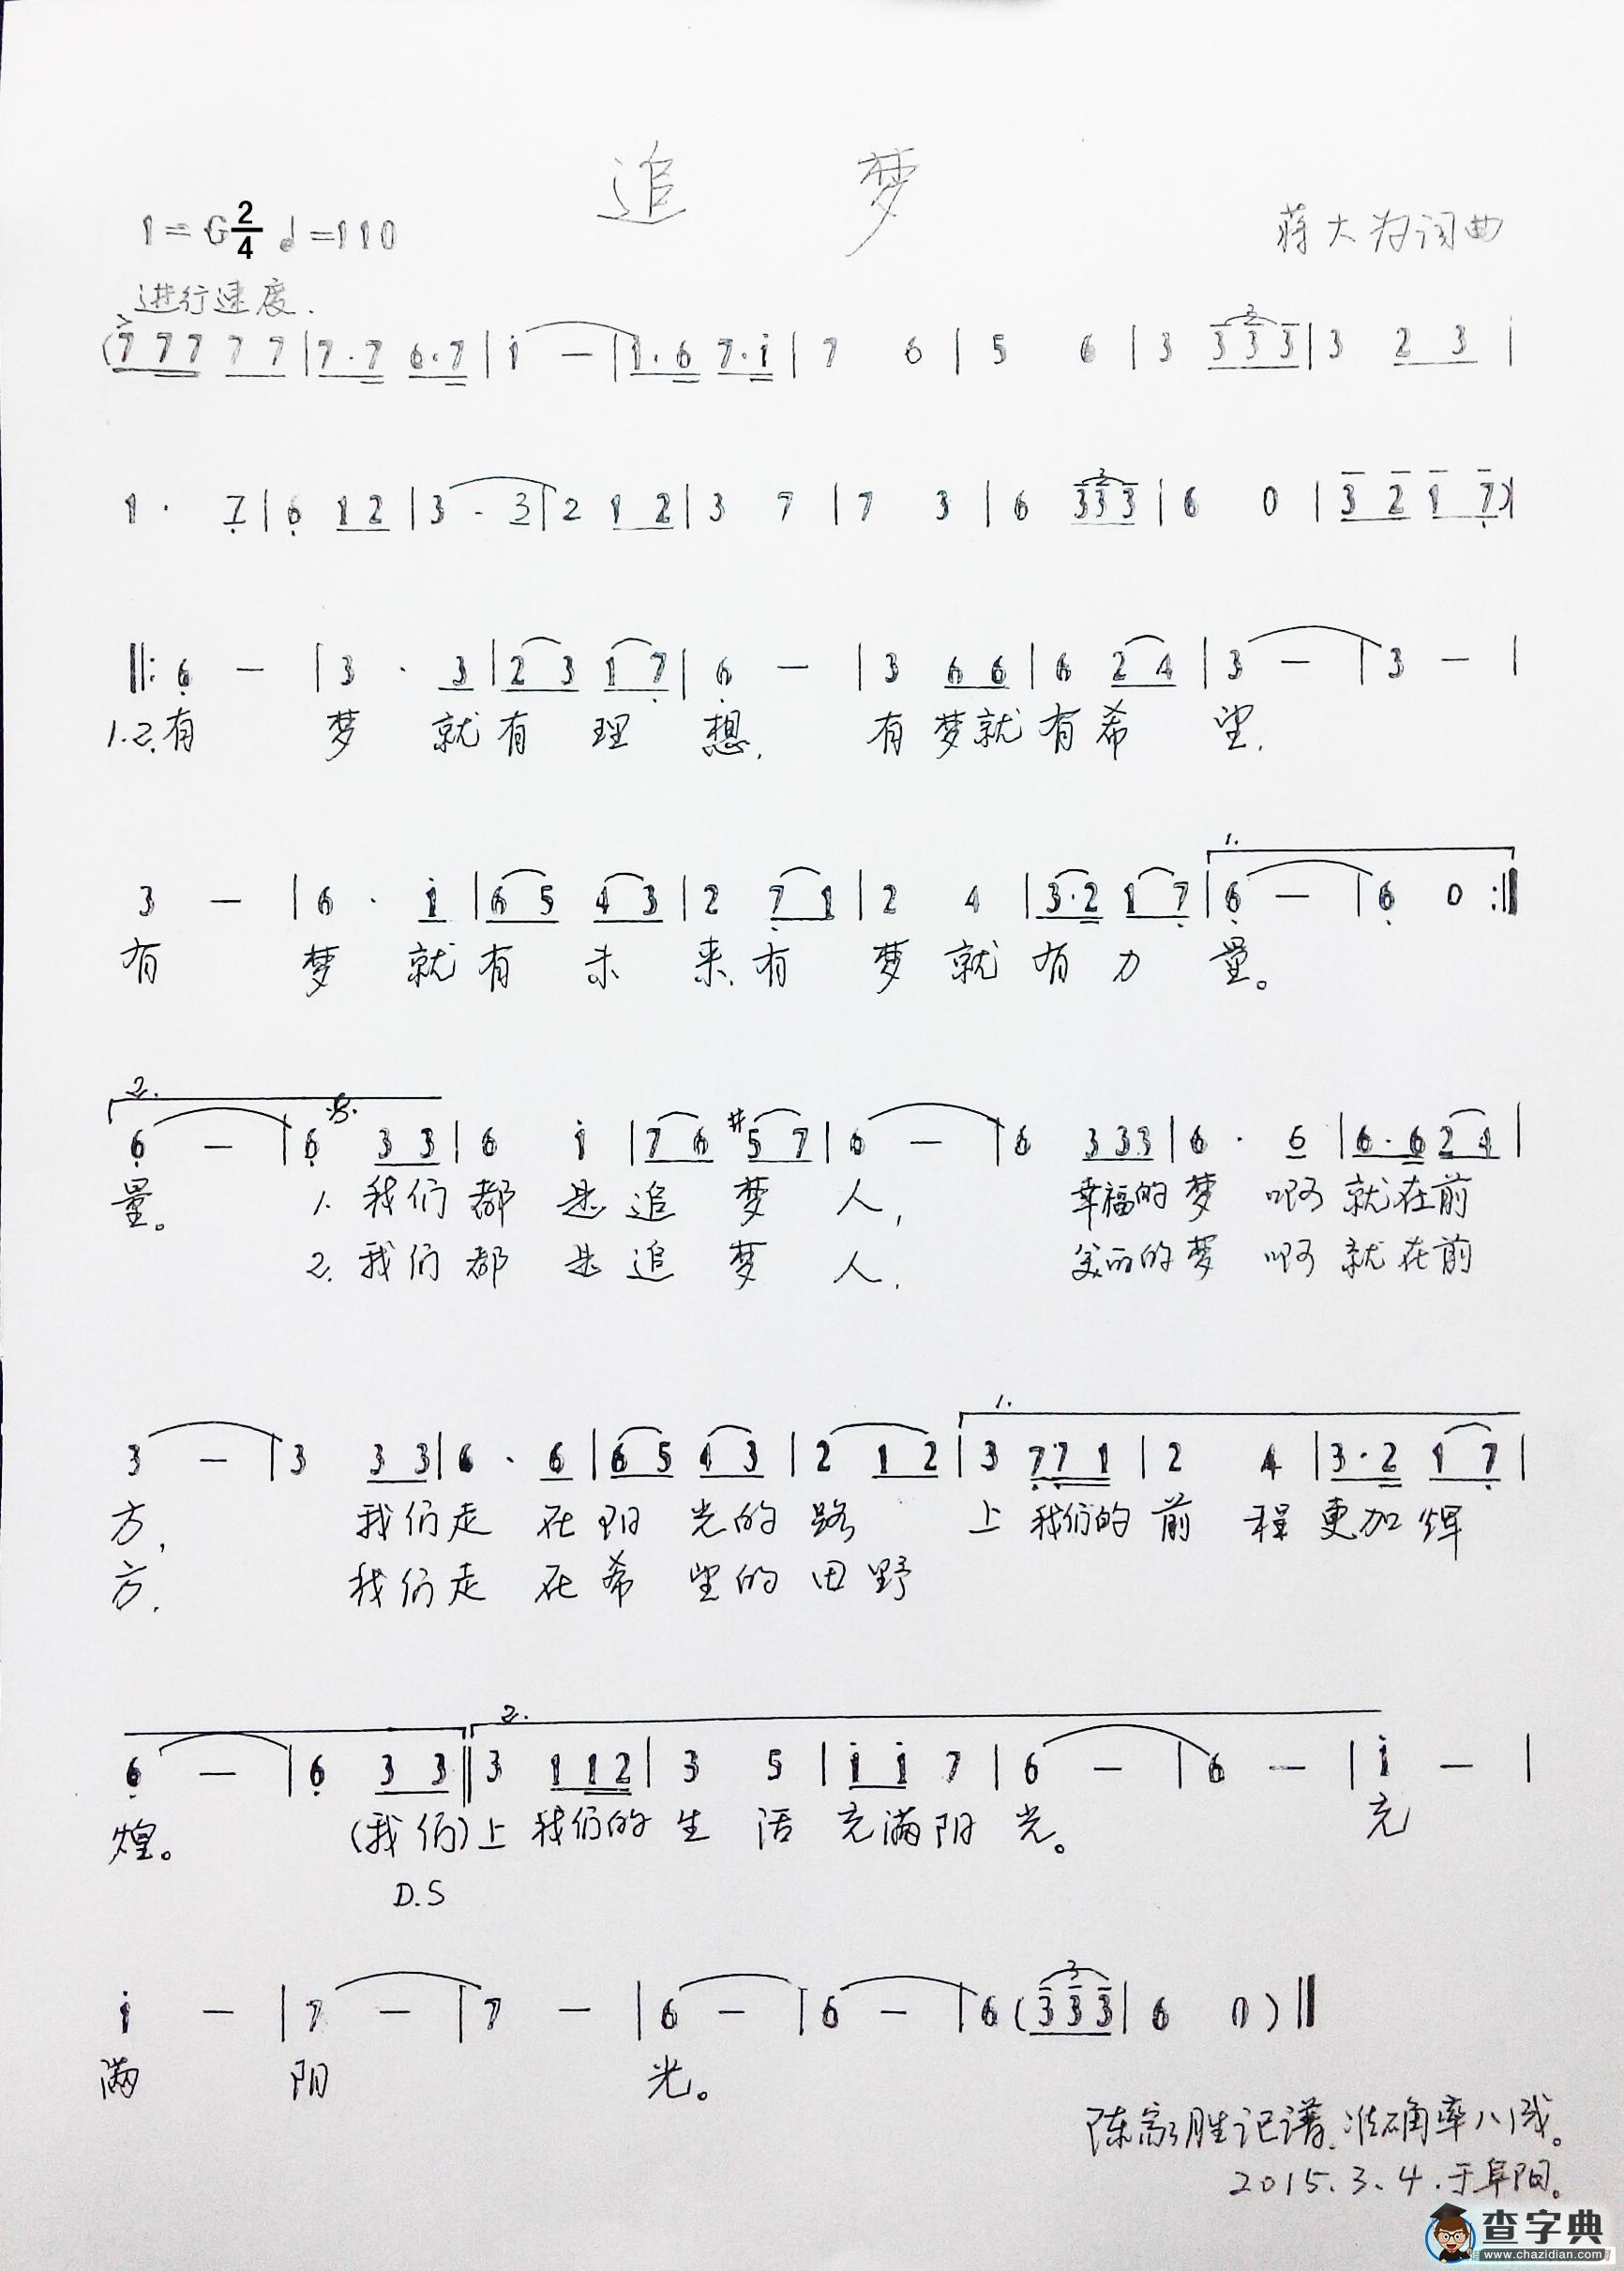 追 梦
1=G 2/4 ♩=110
蒋大为词曲
进行速度.
(7 7 7 7 7 | 7·7 6·7 | i — | i·6 7·i | 7 6 | 5 6 | 3 3 3 3 | 3 2 3 |
1 · 7 | 6 1 2 | 3 - 3 | 2 1 2 | 3 7 | 7 3 | 6 3 3 3 | 6 0 | 3 2 1 7 )|
‖: 6 — | 3 · 3 | 2 3 1 7 | 6 — | 3 6 6 | 6 2 4 | 3 — | 3 — |
1.2.有 梦 就有 理 想. 有梦就有希 望.
1.
3 — | 6 · i | 6 5 4 3 | 2 7 1 | 2 4 | 3·2 1 7 | 6 — | 6 0 :‖
有 梦 就有 未 来.有 梦 就 有 力 量。
2.
6 — | 6 3 3 | 6 i | 7 6 #5 7 | 6 — | 6 3 3 3 | 6 · 6 | 6·6 2 4 |
量。 1.我们都 是追 梦 人, 幸福的梦 啊 就在前
2.我们都 是追 梦 人. 美丽的梦 啊 就在前
1.
3 — | 3 3 3 | 6 · 6 | 6 5 4 3 | 2 1 2 | 3 7 7 1 | 2 4 | 3·2 1 7 |
方, 我们走 在阳 光的 路 上 我们的 前 程 更加 辉
方. 我们走 在希 望的 田野
2.
6 — | 6 3 3 ‖ 3 1 1 2 | 3 5 | i i 7 | 6 — | 6 — | i — |
煌。 (我们)上 我们的 生 活 充满阳 光。 充
D.S
i — | 7 — | 7 — | 6 — | 6 — | 6 (3 3 3 | 6 0 ) ‖
满 阳 光。
陈家胜记谱.准确率八成。
2015.3.4.于阜阳。
查字典
www.chazidian.com